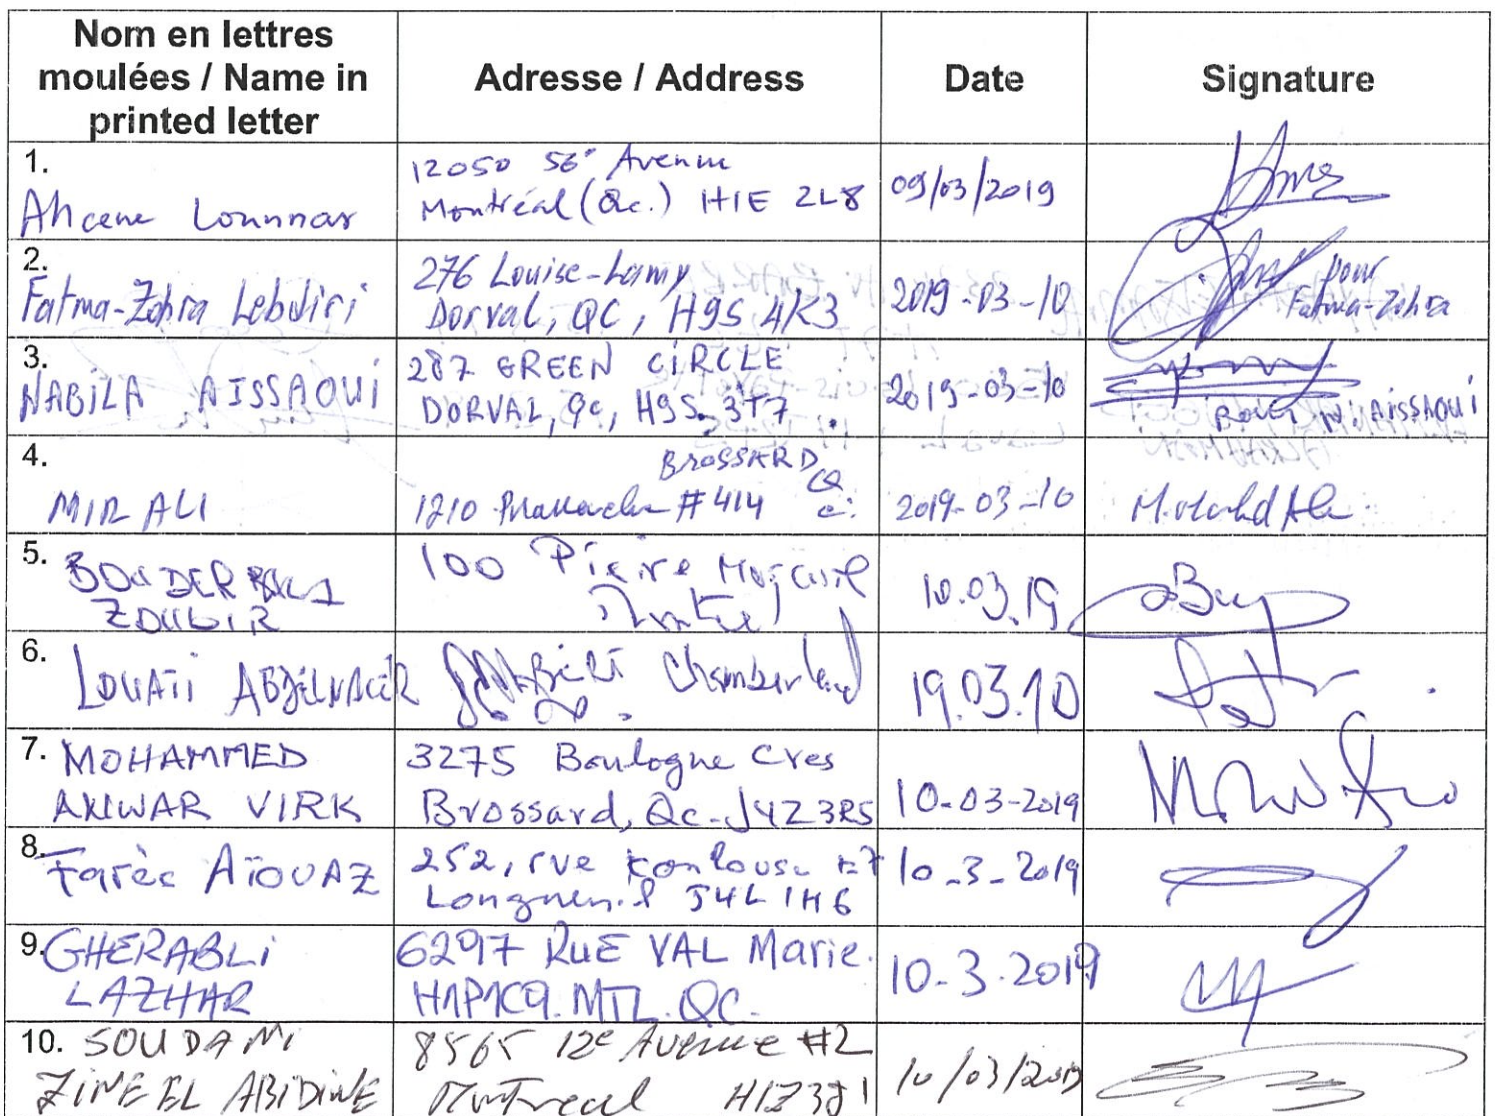 Nom en lettres
moulées / Name in
printed letter
Adresse / Address
Date
Signature
1.
Ahcene Lounnas
12050 56e Avenue
Montréal (Qc.) H1E 2L8
09/03/2019
2.
Fatma-Zohra Lebdiri
276 Louise-Lamy
Dorval, QC, H9S 4K3
2019-03-10
pour
Fatma-Zohra
3.
NABILA AISSAOUI
287 GREEN CIRCLE
DORVAL, Qc, H9S 3T7
2019-03-10
N. AISSAOUI
4.
MIR ALI
BROSSARD
Qc.
1210 #414
2019-03-10
5.
ZOUBIR
100 Pierre
10.03.19
6.
LOUATI
Chamberland
19.03.10
7. MOHAMMED
ANWAR VIRK
3275 Boulogne Cres
Brossard, Qc-J4Z3R5
10-03-2019
8.
Farès AÏOUAZ
252, rue
Longueuil J4L 1H6
10-3-2019
9. GHERABLI
LAZHAR
6297 RUE VAL Marie.
H1P1C9. MTL. QC.
10-3-2019
10. SOUDANI
ZINE EL ABIDINE
8565 12e Avenue #2
Montreal H1Z3J1
10/03/2019